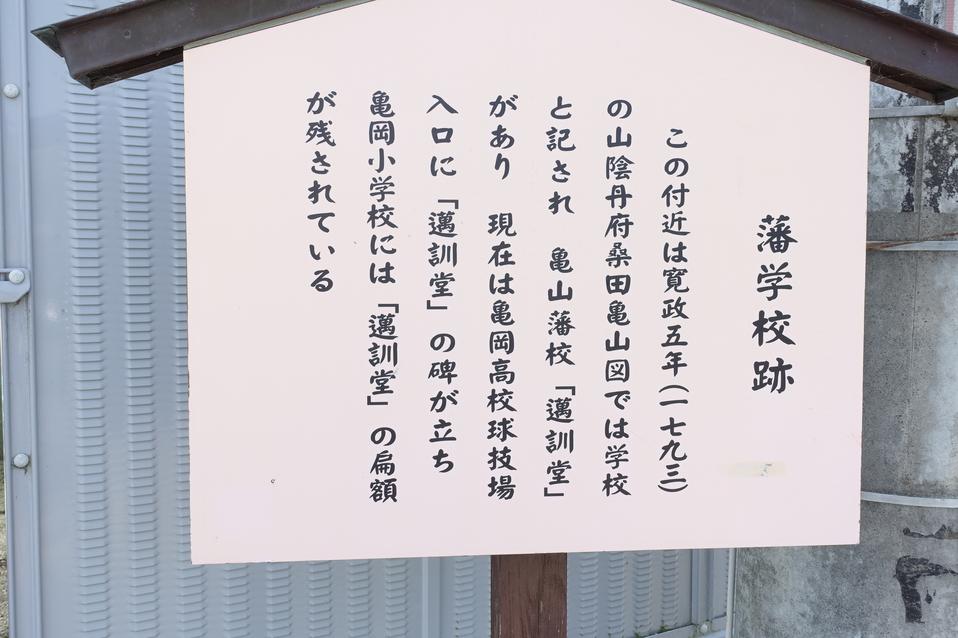 藩学校跡
この付近は寛政五年(一七九三)
の山陰丹府桑田亀山図では学校
と記され　亀山藩校「邁訓堂」
があり　現在は亀岡高校球技場
入口に「邁訓堂」の碑が立ち
亀岡小学校には「邁訓堂」の扁額
が残されている